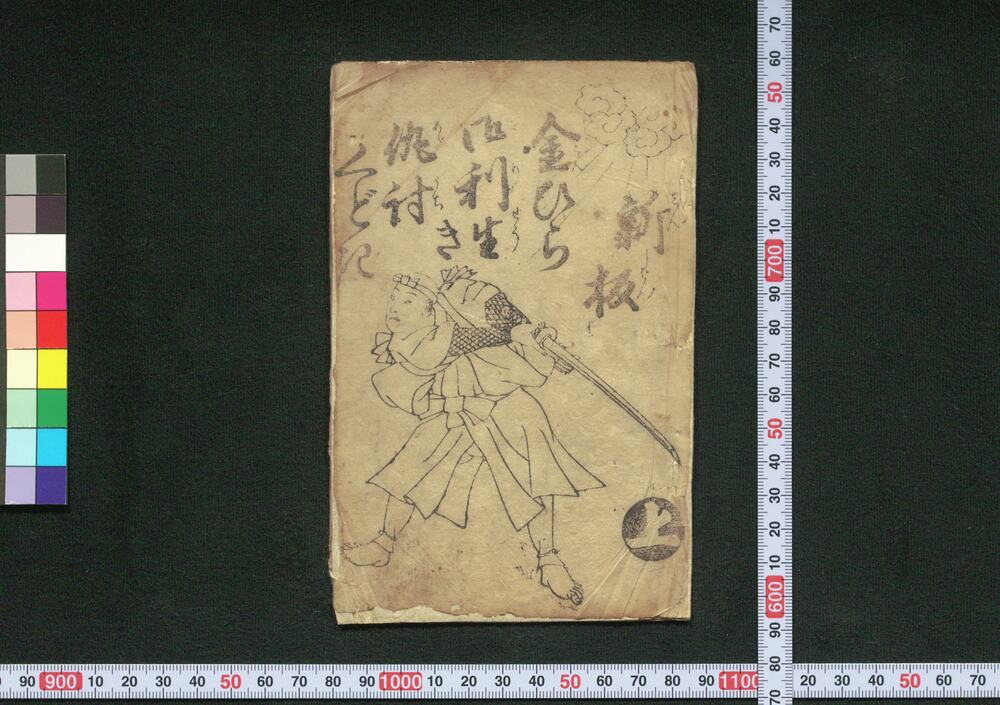 新板
金ひら
御利生
き
仇討
くどき
上
90 900 10 20 30 40 50 60 70 80 90 1000 10 20 30 40 50 60 70 80 90 1100 20 30 40 50 60 70
70 60 50 40 30 20 10 700 90 80 70 60 50 40 30 20 10 600 90 80 70